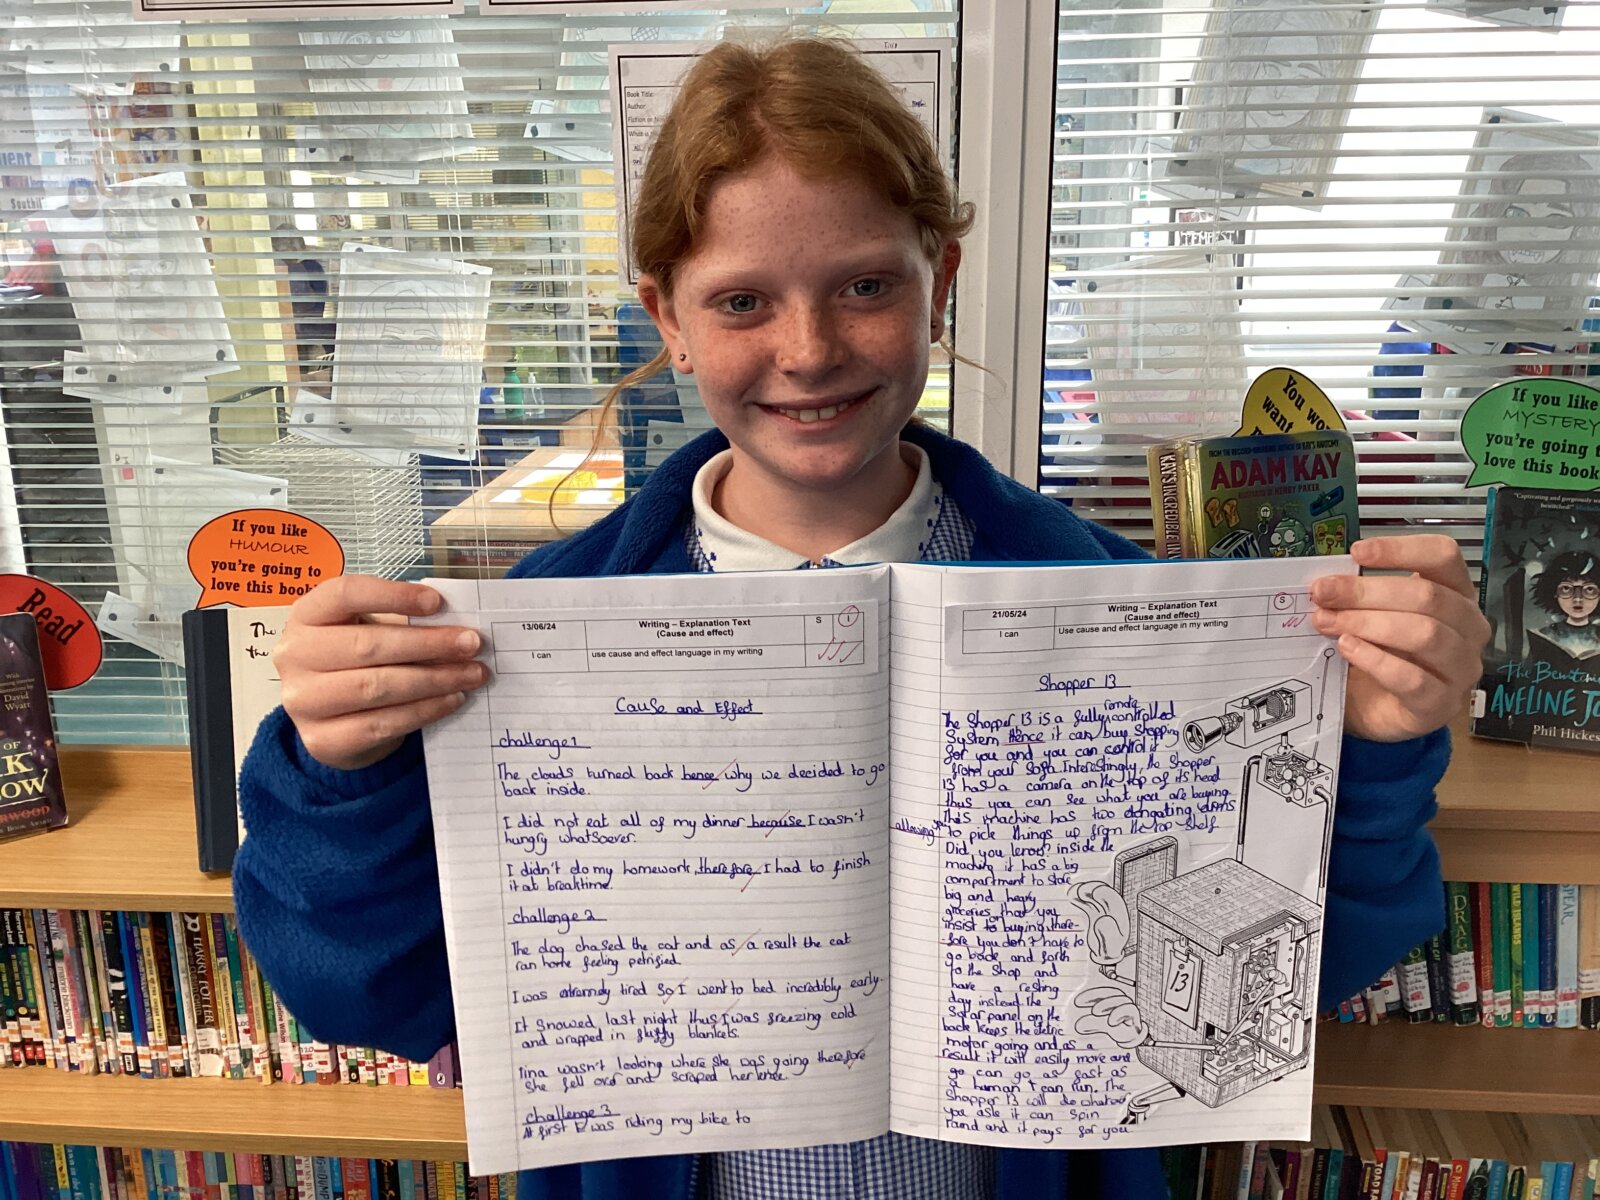 Book Title:
Author:
If you like
HUMOUR
you're going to
love this book
Read
With
David
Wyatt
You
want
FROM THE RECORD-BREAKING AUTHOR OF KAY'S ANATOMY
ADAM KAY
If you like
MYSTERY
you're going to
love this book
AVELINE
Phil Hickes
13/06/24
Writing – Explanation Text
(Cause and effect)
S
I
I can
use cause and effect language in my writing
Cause and Effect
challenge 1
The clouds turned back hence why we decided to go
back inside.
I did not eat all of my dinner because I wasn't
hungry whatsoever.
I didn't do my homework, therefore I had to finish
it at breaktime.
challenge 2
The dog chased the cat and as a result the cat
ran home feeling petrified.
I was extremely tired So I went to bed incredibly early.
It Snowed last night thus I was freezing cold
and wrapped in fluffy blankets.
Tina wasn't looking where she was going therefore
She fell over and scraped her knee.
challenge 3
At first I was riding my bike to
21/05/24
Writing – Explanation Text
(Cause and effect)
S
I can
Use cause and effect language in my writing
Shopper 13
The Shopper 13 is a fully remote controlled
System Hence it can buy Shopping
for you and you can control it
from your Sofa. Interestingly, the Shopper
13 has a camera on the top of its head
thus you can see what you are buying
This machine has two elongating arms
allowing
to pick things up from the top shelf
Did you know? inside the
machine it has a big
compartment to store
big and heavy
groceries that you
insist on buying there-
fore you don't have to
go back and forth
to the Shop and
have a resting
day instead. the
Solar panel on the
back keeps the eletric
motor going and as a
result it will easily move and
go can go as fast as
a human can run. The
Shopper 13 will do whatever
you ask it can Spin
round and it pays for you
13
HARRY POTTER